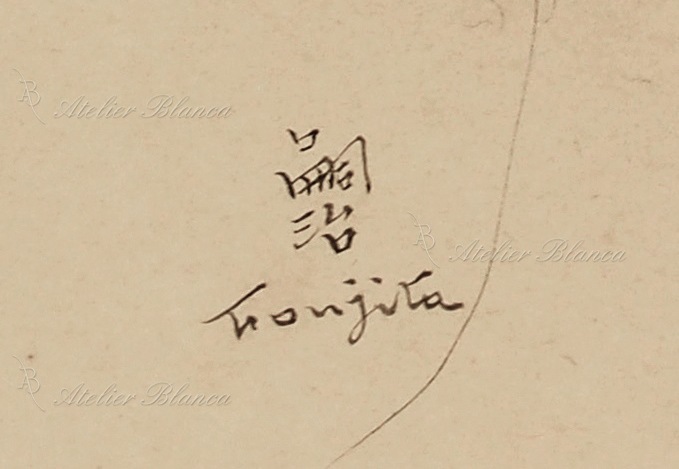 Atelier Blanca
嗣
治
Atelier Blanca
Foujita
Atelier Blanca